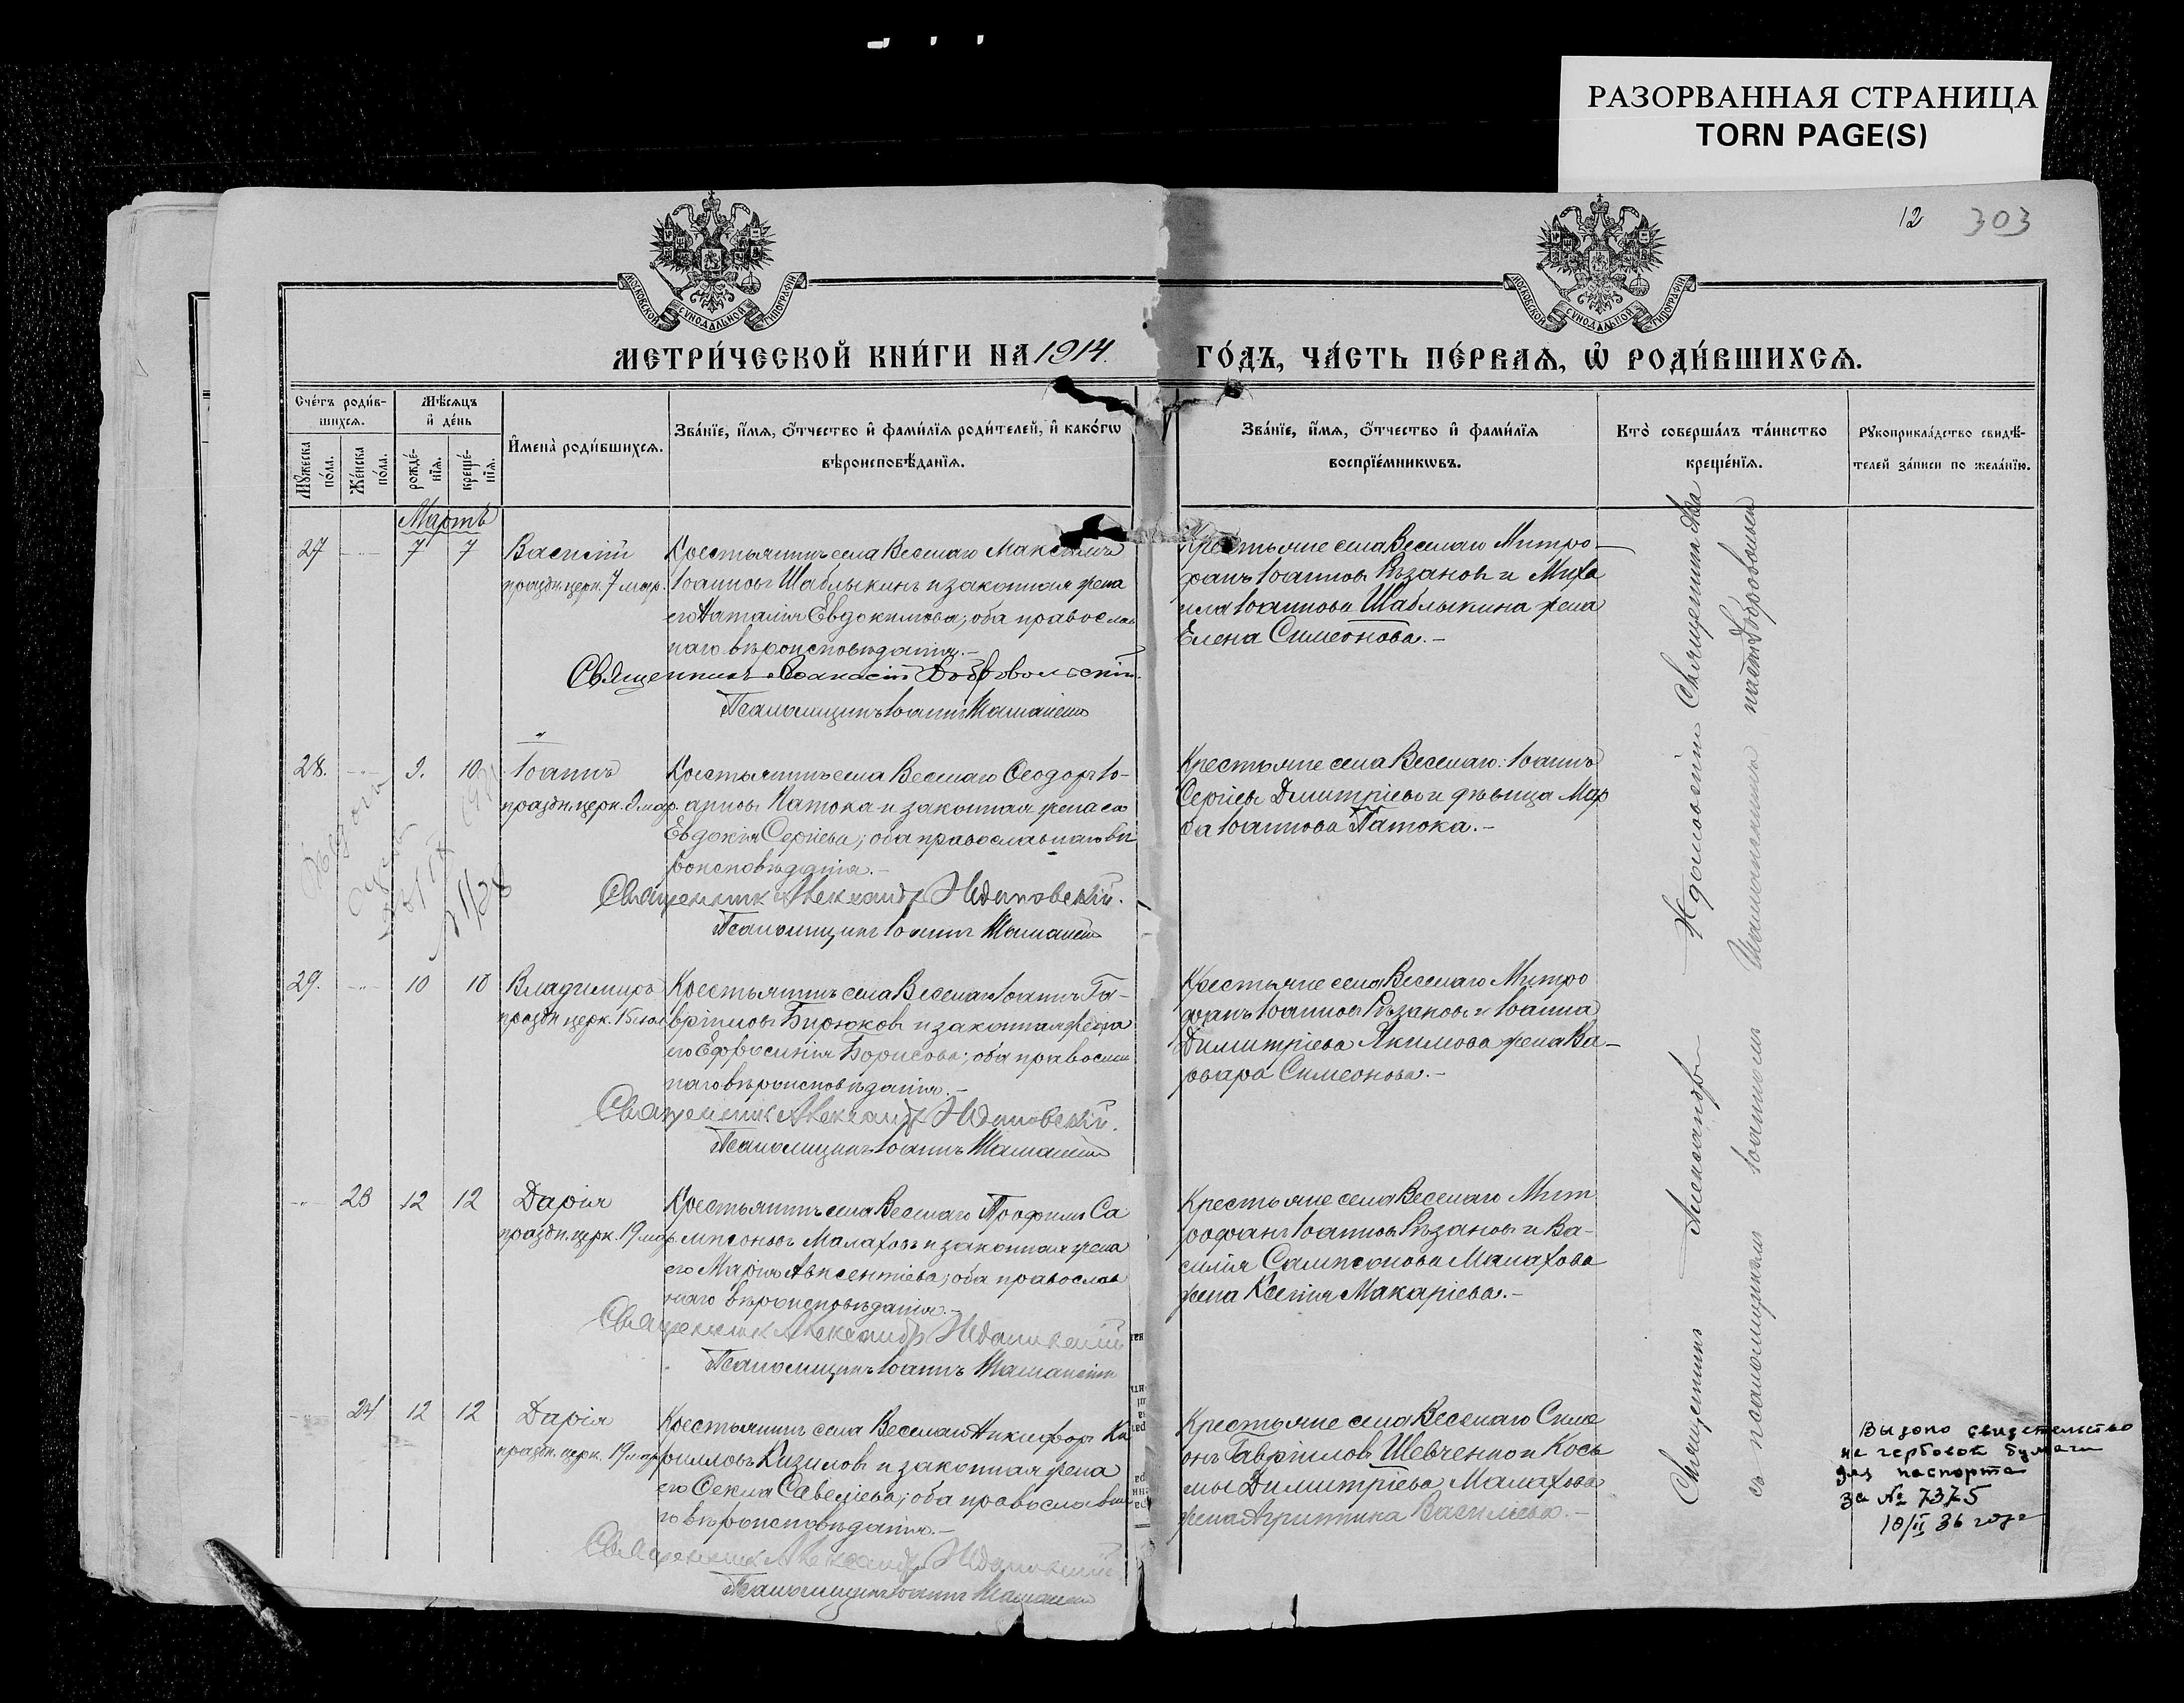 РАЗОРВАННАЯ СТРАНИЦА
TORN PAGE(S)
12 303
МОСКОВСКОЙ СУНОДАЛЬНОЙ ТИПОГРАФІИ
МОСКОВСКОЙ СУНОДАЛЬНОЙ ТИПОГРАФІИ
МЕТРИ́ЧЕСКОЙ КНИ́ГИ НА 1914.
ГО́ДЪ, ЧА́СТЬ ПЕ́РВАѦ, Ѡ҆ РОДИ́ВШИХСѦ.
Сче́тъ роди́в-
шихсѧ.
Мꙋ́жеска по́ла.
Же́нска по́ла.
Мѣ́сѧцъ и҆ де́нь
рожде́-нїѧ.
креще́-нїѧ.
И҆мена̀ роди́вшихсѧ.
Зва́нїе, и҆́мѧ, ѻ҆́тчество и҆ фами́лїѧ роди́телей, и҆ како́гѡ
вѣроисповѣ́данїѧ.
Зва́нїе, и҆́мѧ, ѻ҆́тчество и҆ фами́лїѧ
воспрїе́мникѡвъ.
Кто̀ соверша́лъ та́инство
креще́нїѧ.
Рꙋкоприкла́дство свидѣ́-
телей за́писи по жела́нїю.
Мартъ
27 7 7 Василій
праздн. церк. 7 мар.
Крестьянинъ села Веселаго Максимъ
Іоанновъ Шаблыкинъ и законная жена
его Наталія Евдокимова; оба православ
наго вѣроисповѣданія.-
Священникъ Добровольскій
Псаломщикъ Іоаннъ
Крестьяне села Веселаго Митро-
фанъ Іоанновъ Рѣзановъ и Миха
ила Іоаннова Шаблыкина жена
Елена Симеонова.-
28. 9. 10 Іоаннъ
праздн. церк. 9 мар.
Крестьянинъ села Веселаго Ѳеодоръ Іо-
анновъ Патока и законная жена его
Евдокія Сергіева; оба православнаго вѣ
роисповѣданія.-
Священник Александр Ждановскій.
Псаломщикъ Іоаннъ
Крестьяне села Веселаго: Іоаннъ
Сергіевъ Димитріевъ и дѣвица Мар
ѳа Іоаннова Патока.-
29. 10 10 Владимиръ
праздн. церк. 15 іюл
Крестьянинъ села Веселаго Іоаннъ Га-
вріиловъ Бирюковъ и законная жена
его Ефросинія Борисова; оба православ
наго вѣроисповѣданія.-
Священник Александр Ждановскій.
Псаломщикъ Іоаннъ
Крестьяне села Веселаго Митро
фанъ Іоанновъ Рѣзановъ и Іоанна
Димитріева Якимова жена Ва-
рвара Симеонова.-
23 12 12 Дарія
праздн. церк. 19 мар
Крестьянинъ села Веселаго Трофимъ Са
мпсоновъ Малаховъ и законная жена
его Марія Авксентіева; оба православ
наго вѣроисповѣданія.-
Священник Александр Ждановскій
Псаломщикъ Іоаннъ
Крестьяне села Веселаго Мит
рофанъ Іоанновъ Рѣзановъ и Ва-
силія Сампсонова Малахова
жена Ксенія Макаріева.-
24 12 12 Дарія
праздн. церк. 19 мар
Крестьянинъ села Веселаго Никифоръ Ки
рилловъ и законная жена
его Ѳекла Савеліева; оба православна
го вѣроисповѣданія.-
Священник Александр Ждановскій
Псаломщикъ Іоаннъ
Крестьяне села Веселаго Симе
онъ Гавріиловъ Шевченко и Кось
мы Димитріева Малахова
жена Агриппина Васильева.-
Священникъ Александръ Ждановскій Священникъ
съ псаломщикомъ Іоанномъ
Выдано свидетельство
на гербовой бумаге
для паспорта
за № 7375
10/II 36 года